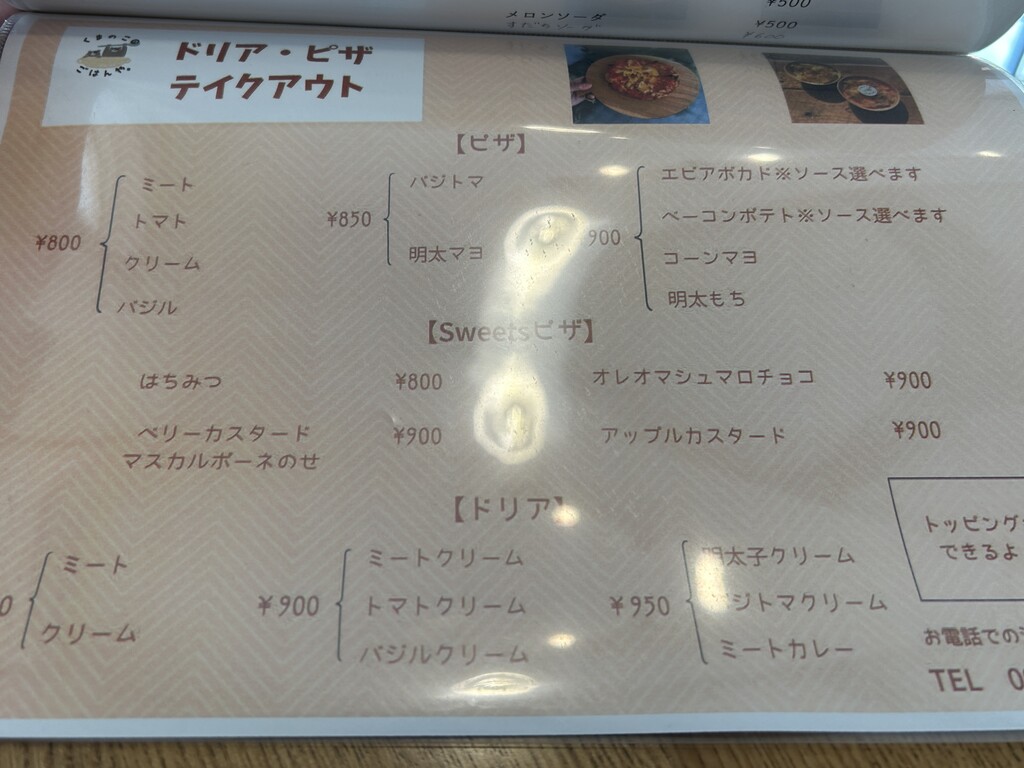 メロンソーダ
¥500
¥500
ドリア・ピザ
テイクアウト
【ピザ】
¥800
ミート
トマト
クリーム
バジル
¥850
バジトマ
明太マヨ
900
エビアボカド※ソース選べます
ベーコンポテト※ソース選べます
コーンマヨ
明太もち
【Sweetsピザ】
はちみつ ¥800
オレオマシュマロチョコ ¥900
ベリーカスタード ¥900
マスカルポーネのせ
アップルカスタード ¥900
【ドリア】
0
ミート
クリーム
¥900
ミートクリーム
トマトクリーム
バジルクリーム
¥950
明太子クリーム
バジトマクリーム
ミートカレー
トッピング
できるよ
お電話での
TEL 0